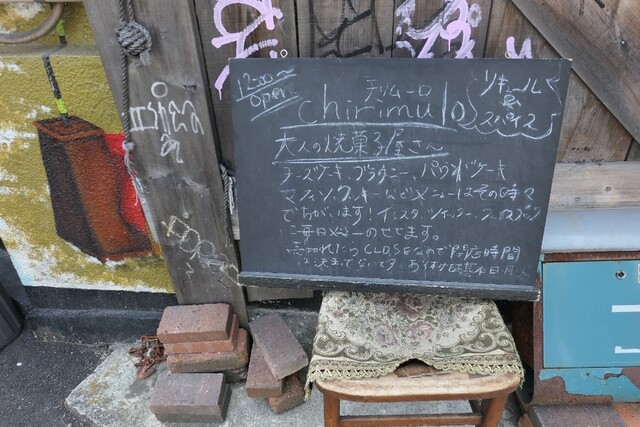 12:00~
open
チリムーロ
chirimulo
リキュール
&
スパイス
大人の焼菓子屋さん
チーズケーキ、ブラウニー、パウンドケーキ
マフィン、クッキーなどメニューはその時々
でちがいます!インスタ、ツイッター、
に毎日メニューのせてます。
売切れしだいCLOSEなので閉店時間
は決まってないです。お休みは基本日、月